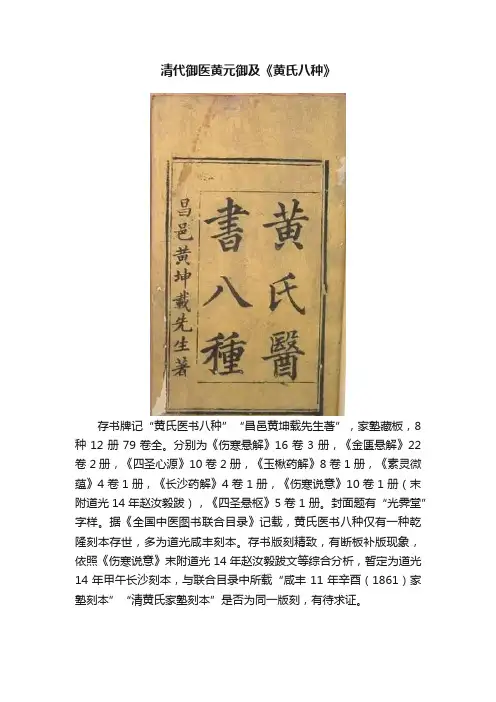 清代御医黄元御及《黄氏八种》
黄氏醫
書八種
昌邑黄坤載先生著
存书牌记“黄氏医书八种”“昌邑黄坤载先生著”，家塾藏板，8
种 12 册 79 卷全。分别为《伤寒悬解》16 卷 3 册，《金匮悬解》22
卷 2 册，《四圣心源》10 卷 2 册，《玉楸药解》8 卷 1 册，《素灵微
蕴》4 卷 1 册，《长沙药解》4 卷 1 册，《伤寒说意》10 卷 1 册（末
附道光 14 年赵汝毅跋），《四圣悬枢》5 卷 1 册。封面题有“光霁堂”
字样。据《全国中医图书联合目录》记载，黄氏医书八种仅有一种乾
隆刻本存世，多为道光咸丰刻本。存书版刻精致，有断板补版现象，
依照《伤寒说意》末附道光 14 年赵汝毅跋文等综合分析，暂定为道光
14 年甲午长沙刻本，与联合目录中所载“咸丰 11 年辛酉（1861）家
塾刻本”“清黄氏家塾刻本”是否为同一版刻，有待求证。